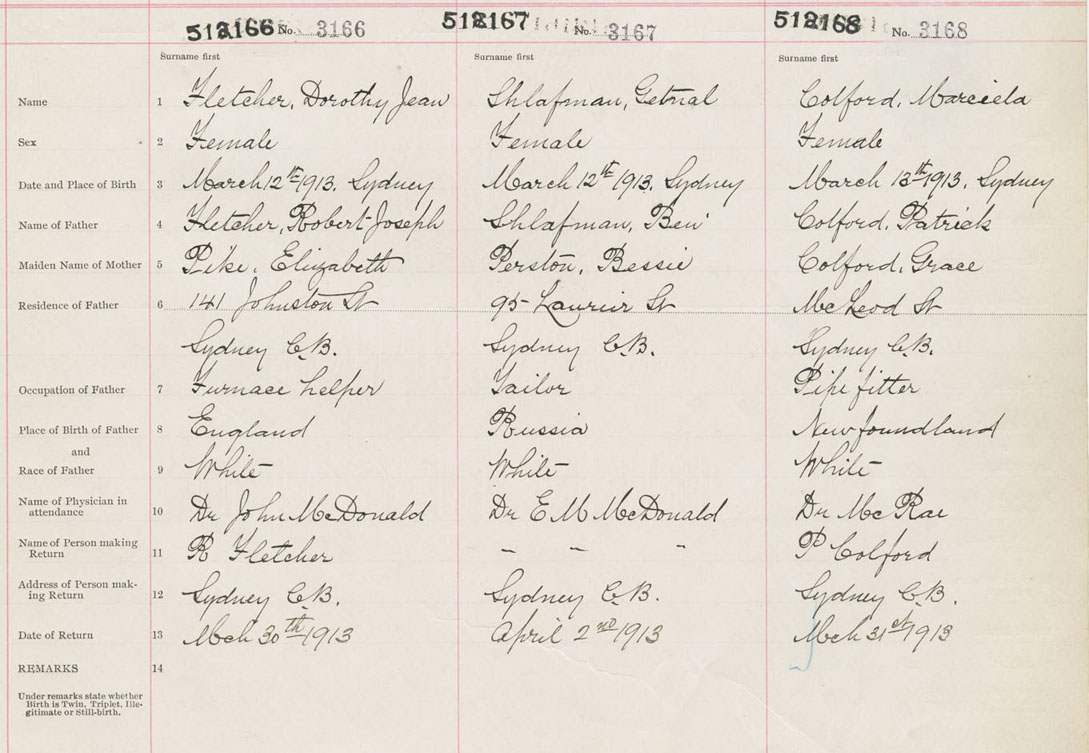 512166 No. 3166 512167 No. 3167 512168 No. 3168
Surname first Surname first Surname first
Name 1 Fletcher, Dorothy Jean Shlafman, Getrial Colford, Marciela
Sex 2 Female Female Female
Date and Place of Birth 3 March 12th 1913, Sydney March 12th 1913, Sydney March 13th 1913, Sydney
Name of Father 4 Fletcher, Robert Joseph Shlafman, Ben Colford, Patrick
Maiden Name of Mother 5 Pike, Elizabeth Perston, Bessie Colford, Grace
Residence of Father 6 141 Johnston St 95 Laurier St McLeod St
Sydney C.B. Sydney C.B. Sydney C.B.
Occupation of Father 7 Furnace helper Tailor Pipe fitter
Place of Birth of Father 8 England Russia Newfoundland
and
Race of Father 9 White White White
Name of Physician in
attendance 10 Dr John McDonald Dr E M McDonald Dr McRae
Name of Person making
Return 11 R Fletcher - - - P Colford
Address of Person mak-
ing Return 12 Sydney C.B. Sydney C.B. Sydney C.B.
Date of Return 13 Mch 30th 1913 April 2nd 1913 Mch 31st 1913
REMARKS 14
Under remarks state whether
Birth is Twin, Triplet, Ille-
gitimate or Still-birth.